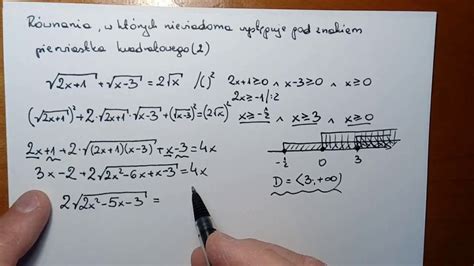 Równania, w których niewiadoma występuje pod znakiem
pierwiastka kwadratowego (2)
√(2x+1) + √(x-3) = 2√x /()² 2x+1≥0 ∧ x-3≥0 ∧ x≥0
2x≥-1/:2
(√(2x+1))² + 2·√(2x+1)·√(x-3) + (√(x-3))² = (2√x)² x≥-½ ∧ x≥3 ∧ x≥0
2x+1+2·√((2x+1)(x-3)) + x-3 = 4x
-½ 0 3
3x-2+2√(2x²-6x+x-3) = 4x
D = <3,+∞)
2√(2x²-5x-3) =